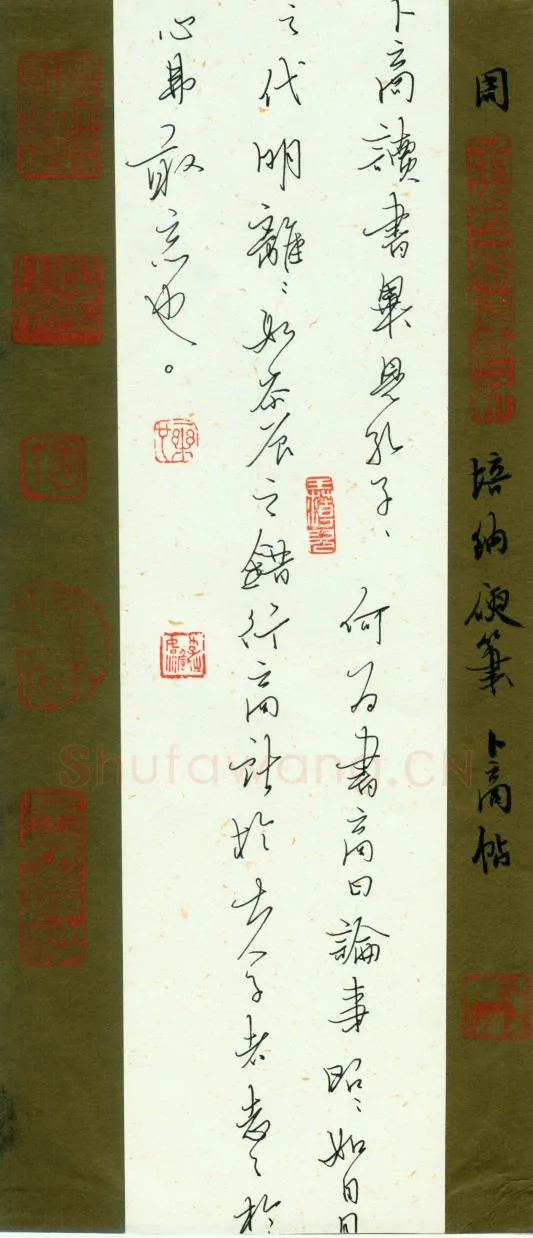 周 培纳硬筆 卜商帖
卜商讀書畢見孔子、何為書商曰論事昭〻如日月
之代明離〻如參辰之錯行商於夫子者志之於
心弗敢忘也。
Shufawang.CN